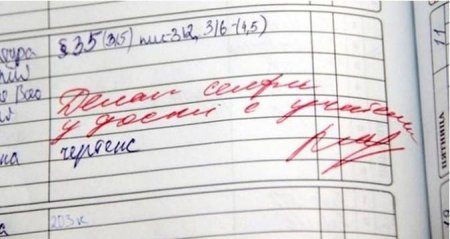 §35 (3,5) пис-312, 316-(4,5)
Делал селфи
у доски с учителем
чертенс
203к
11
ПЯТНИЦА